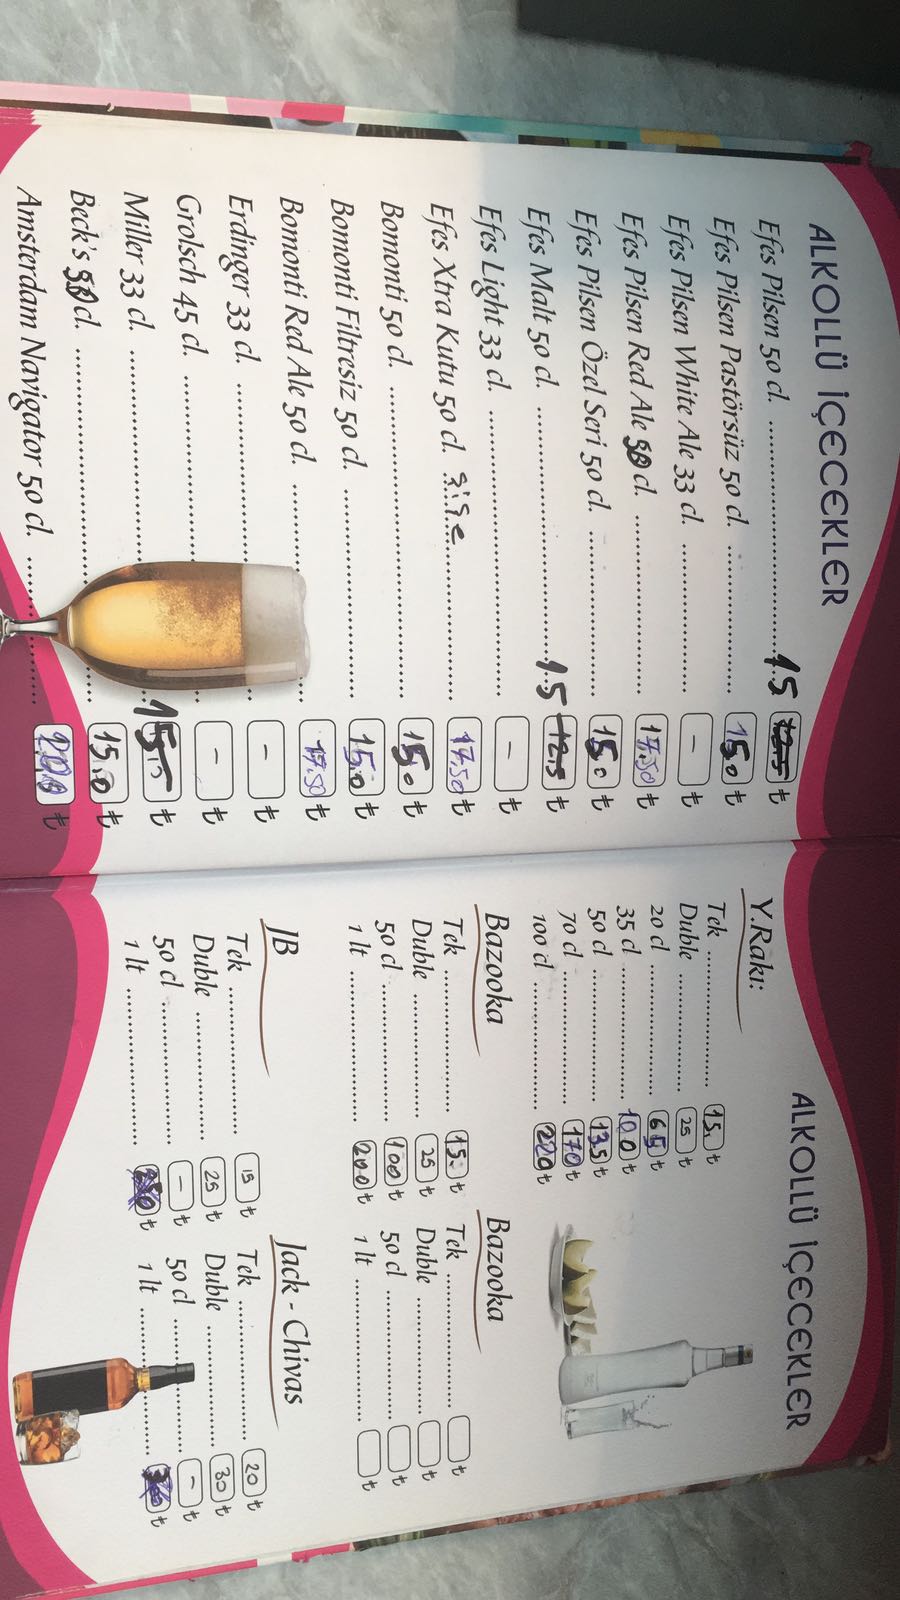 ALKOLLÜ İÇECEKLER
Efes Pilsen 50 cl. 15 12,5 ₺
Efes Pilsen Pastörsüz 50 cl. 15.0 ₺
Efes Pilsen White Ale 33 cl. - ₺
Efes Pilsen Red Ale 50 cl. 17.50 ₺
Efes Pilsen Özel Seri 50 cl. 15.0 ₺
Efes Malt 50 cl. 15 12,5 ₺
Efes Light 33 cl. - ₺
Efes Xtra Kutu 50 cl. şişe 17.50 ₺
Bomonti 50 cl. 15.0 ₺
Bomonti Filtresiz 50 cl. 15.0 ₺
Bomonti Red Ale 50 cl. 17.50 ₺
Erdinger 33 cl. - ₺
Grolsch 45 cl. - ₺
Miller 33 cl. 15 ₺
Beck's cl. 15.0 ₺
Amsterdam Navigator 50 cl. ₺
ALKOLLÜ İÇECEKLER
Y.Rakı:
Tek 15. ₺
Duble 25 ₺
20 cl 65 ₺
35 cl 100 ₺
50 cl 135 ₺
70 cl 170 ₺
100 cl 220 ₺
Bazooka
Tek 15. ₺
Duble 25 ₺
50 cl 100 ₺
1 lt 200 ₺
Bazooka
Tek ₺
Duble ₺
50 cl ₺
1 lt ₺
JB
Tek 15 ₺
Duble 25 ₺
50 cl - ₺
1 lt ₺
Jack - Chivas
Tek 20 ₺
Duble 30 ₺
50 cl - ₺
1 lt ₺